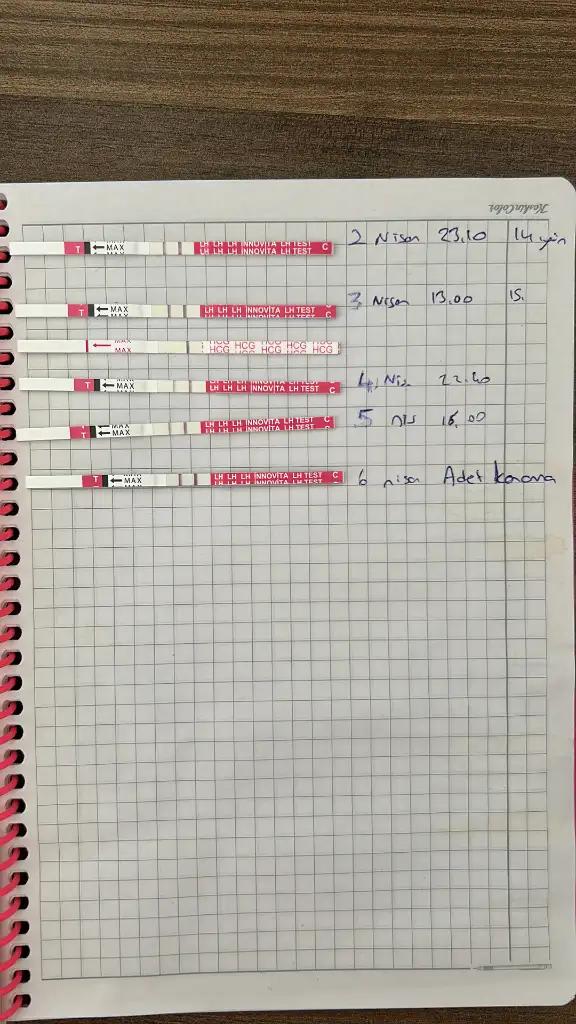 KeskinColor
← MAX LH LH LH INNOVİTA LH TEST C
T LH LH LH INNOVİTA LH TEST
2 Nisan 23.10 14 gün
T ← MAX LH LH LH INNOVİTA LH TEST C
3 Nisan 13.00 15.
← MAX HCG HCG HCG HCG HCG
T ← MAX LH LH LH INNOVİTA LH TEST C
4 Nis 22.40
T ← MAX LH LH LH INNOVİTA LH TEST C
5 nis 16.00
T ← MAX LH LH LH INNOVİTA LH TEST C
6 nisan Adet kanama